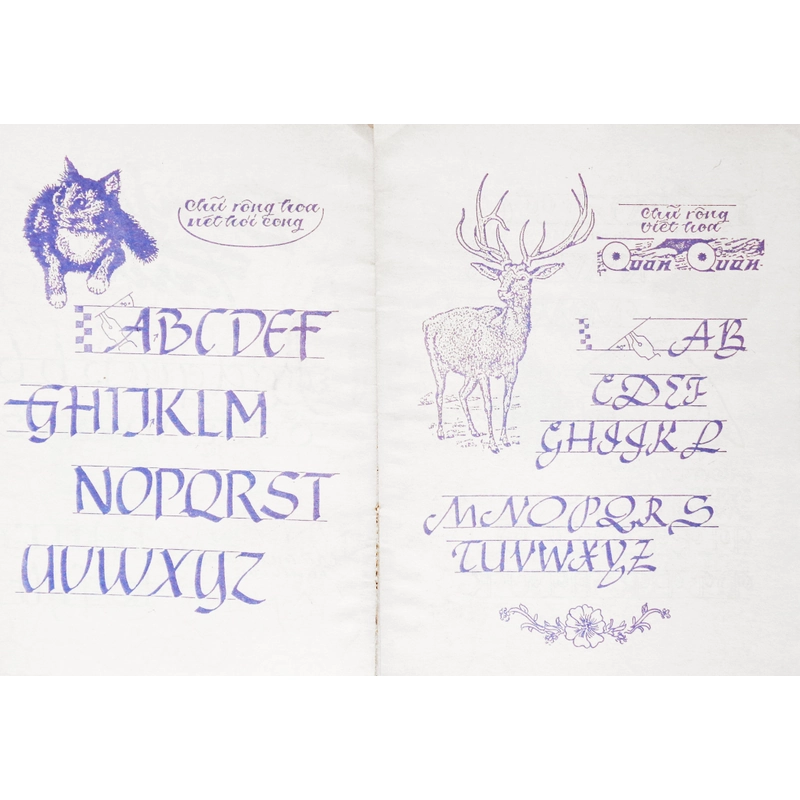 Chữ rông hoa
nét hơi cong
ABCDEF
GHIJKLM
NOPQRST
UVWXYZ
Chữ rông
viết hoa
Quan Quan
AB
CDEF
GHIJKL
MNOPQRS
TUVWXYZ